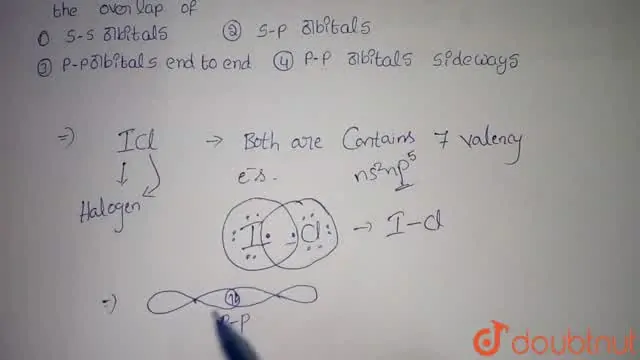 the overlap of
① S-S orbitals ② S-P orbitals
③ P-P orbitals end to end ④ P-P orbitals sideways
⇒ ICl → Both are Contains 7 valency
e⁻s. ns²np⁵
Halogen
I Cl → I-Cl
⇒
P-P
doubtnut